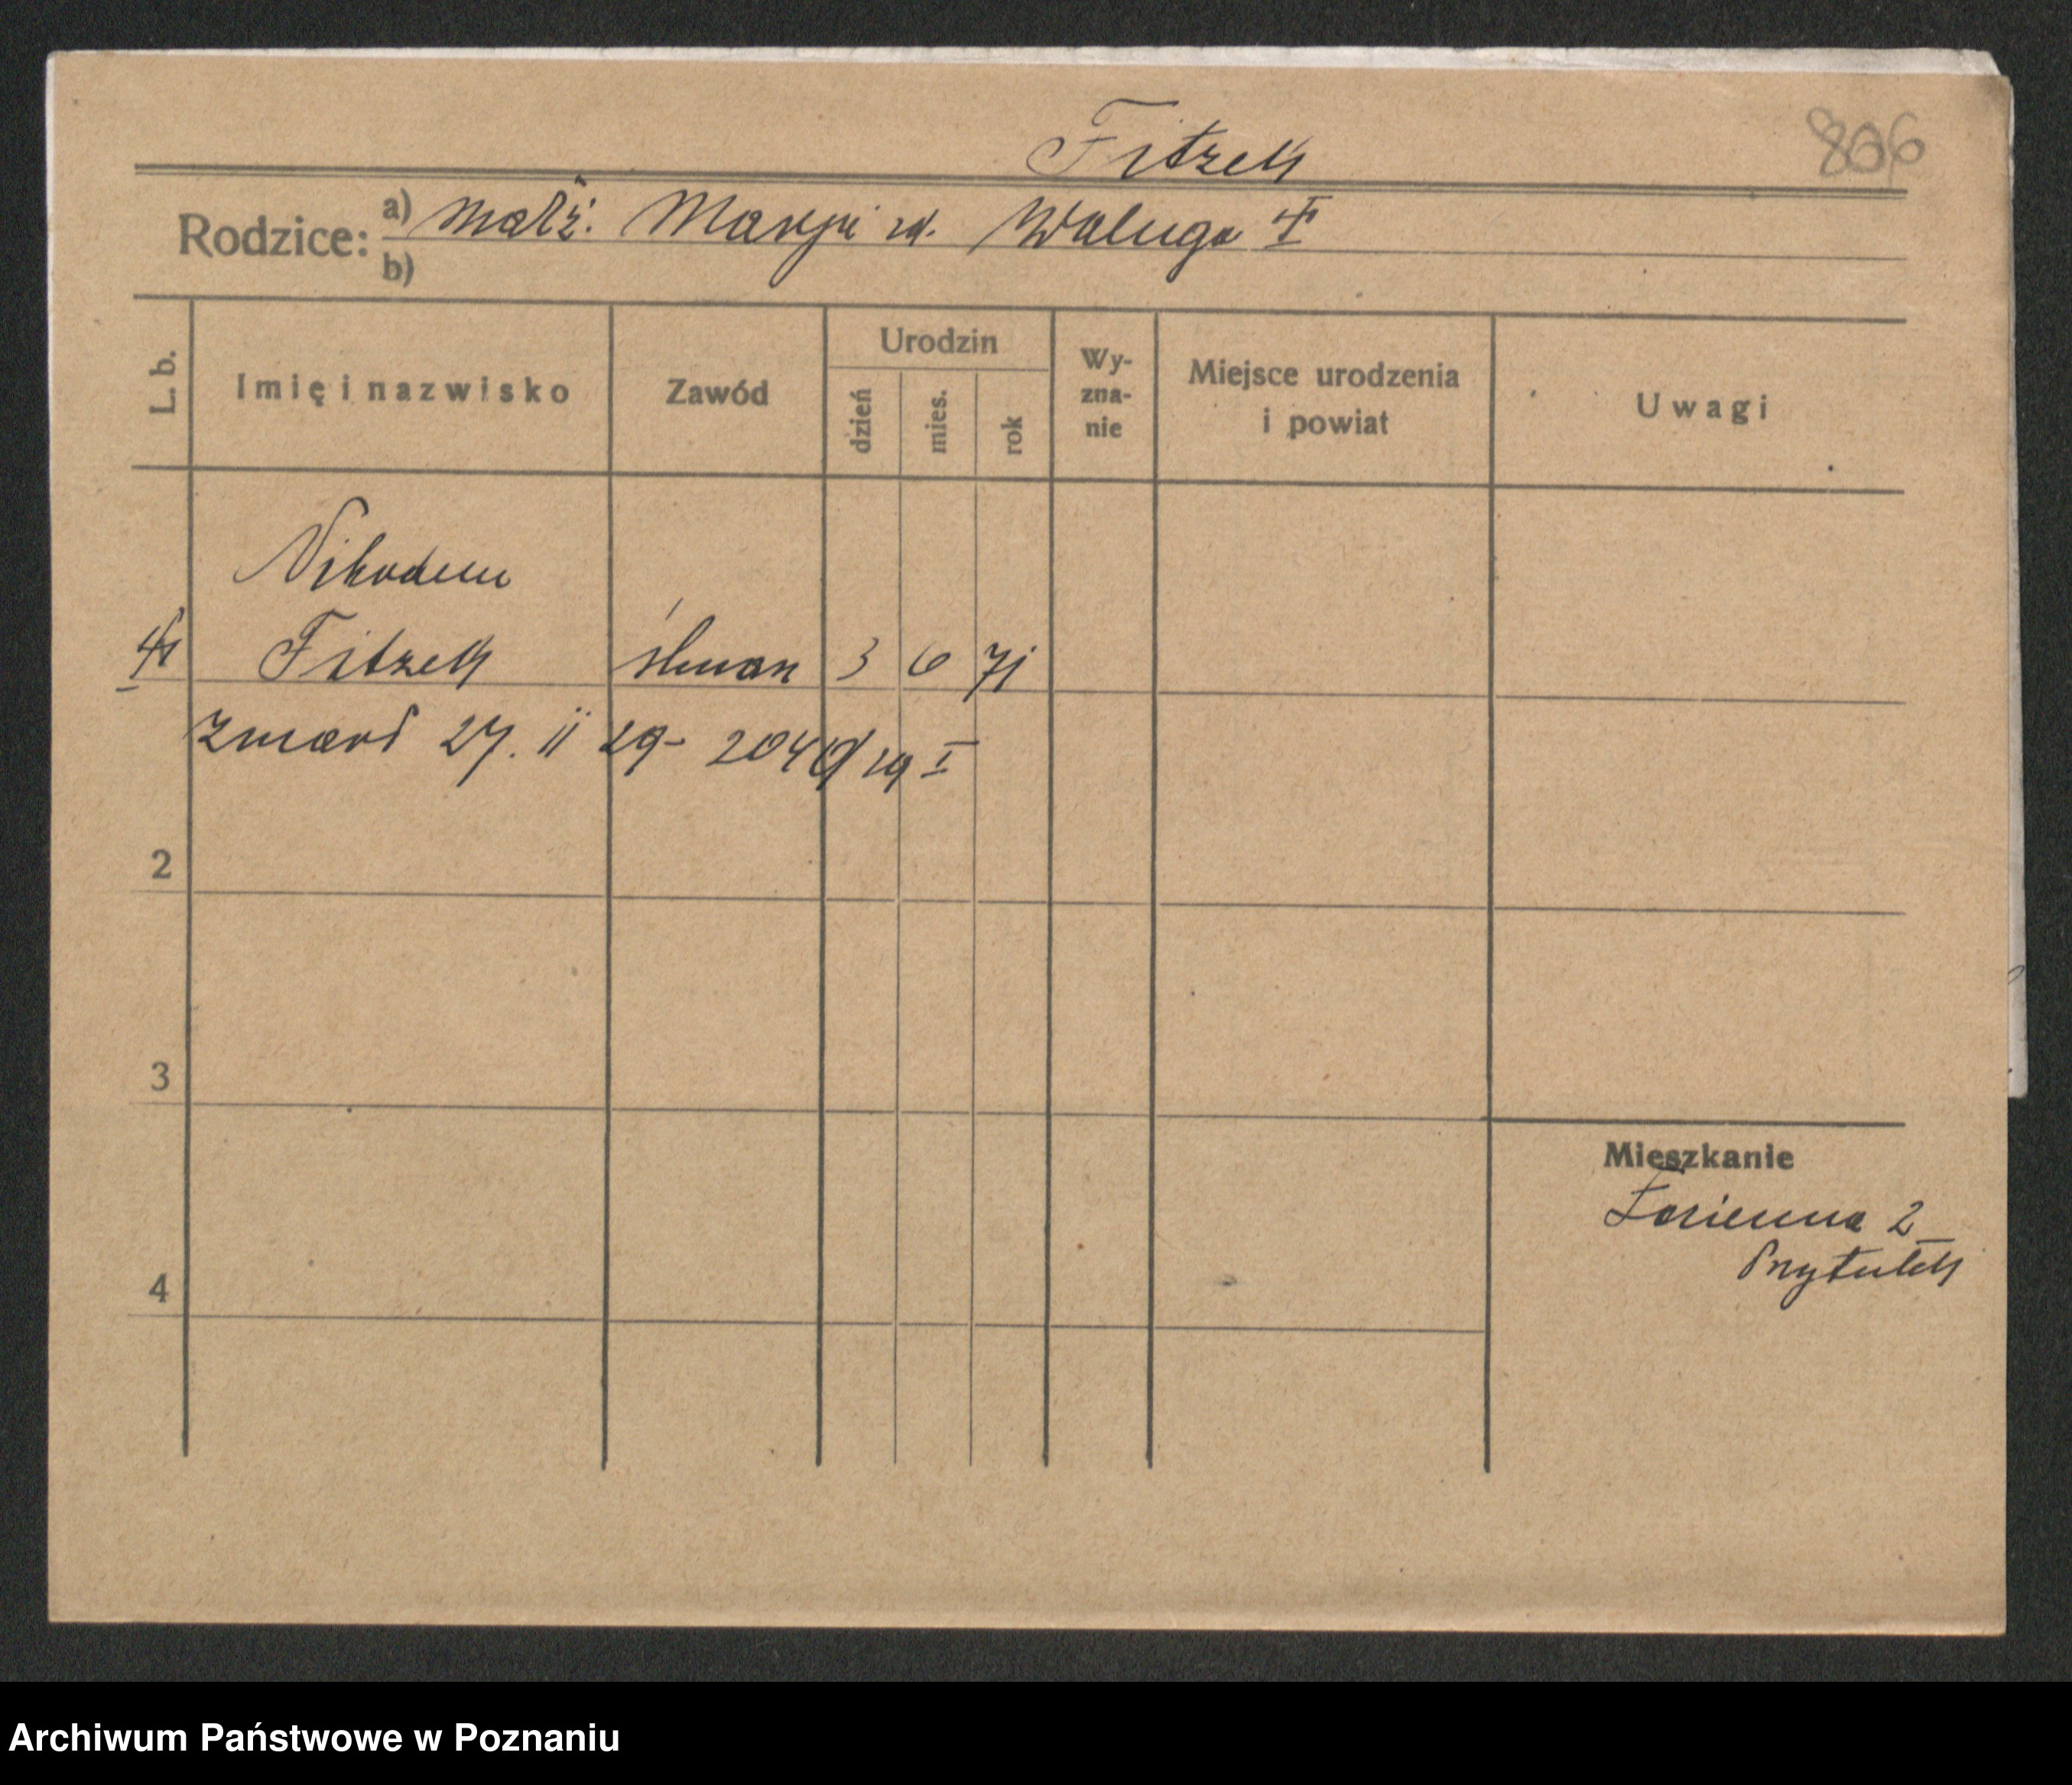 Fitzek
806
Rodzice: a) małż. Maryi zd. Waluga
b)
L. b.
Imię i nazwisko
Zawód
Urodzin
dzień
mies.
rok
Wy-
zna-
nie
Miejsce urodzenia
i powiat
Uwagi
Nikodem
1 Fitzek ślusarz 3 6 71
zmarł 27. II 29 -
2
3
4
Mieszkanie
Łazienna 2
Przytułek
Archiwum Państwowe w Poznaniu